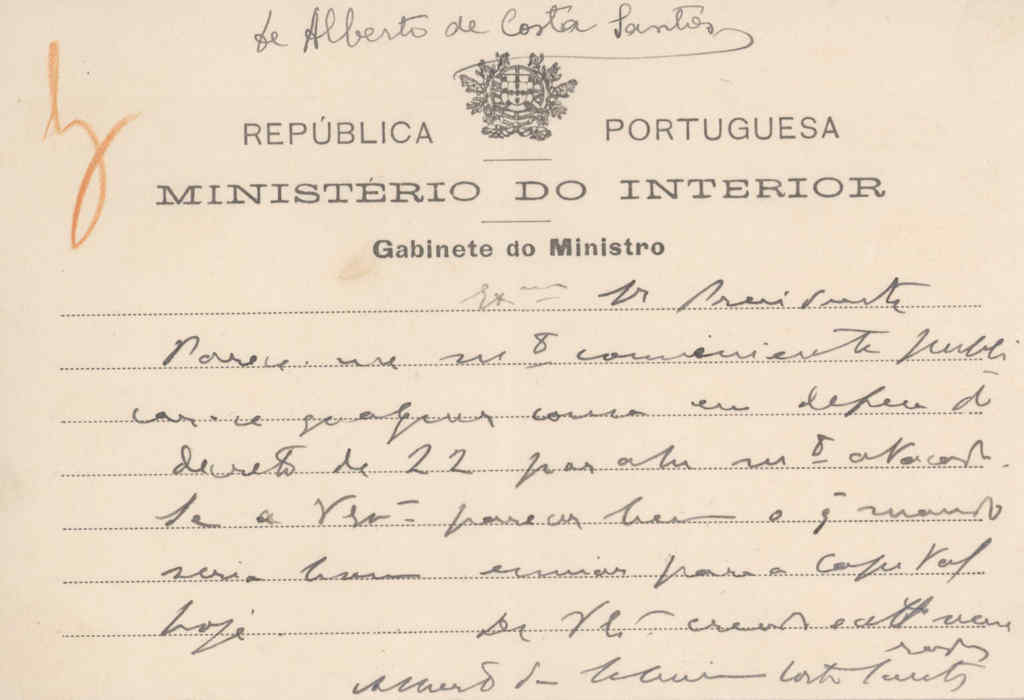 de Alberto de Costa Santos
REPÚBLICA PORTUGUESA
MINISTÉRIO DO INTERIOR
Gabinete do Ministro
Exmo Sr Presidente
Parece-me mto conveniente publi
car-se qualquer cousa em defeza do
decreto de 22 por estar mto atacado.
Se a V Exa parecer bem o q mando
seria bom enviar para a Capital
hoje. De V Exa
Alberto da Costa Santos